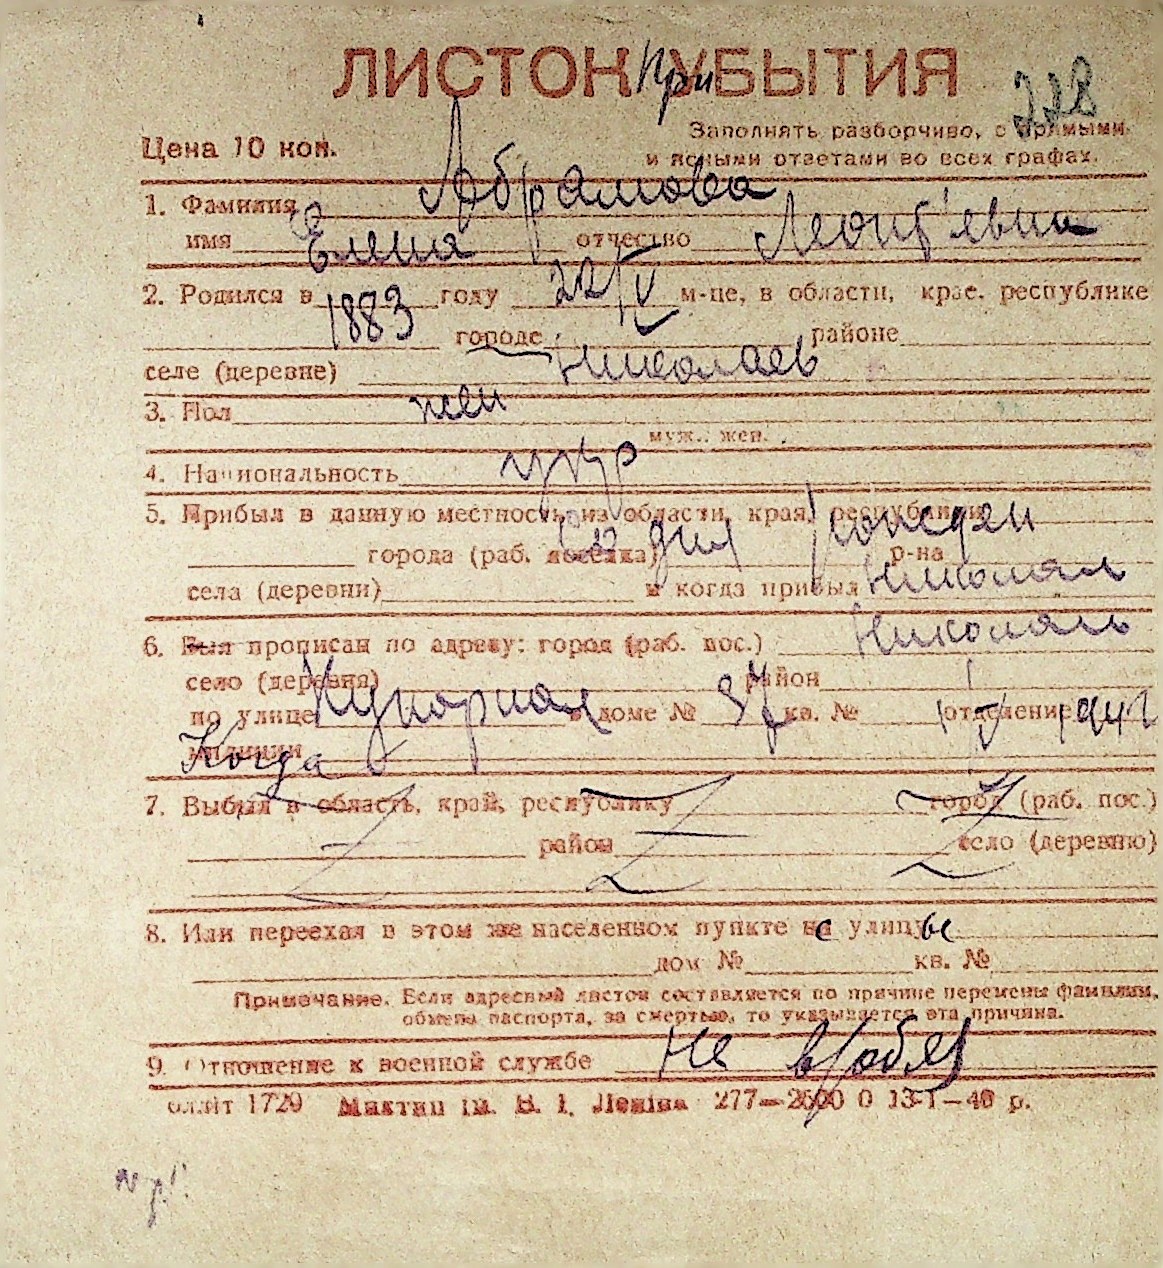 ЛИСТОК УБЫТИЯ
При
228
Цена 10 коп.
Заполнять разборчиво, с прямыми
и ясными ответами во всех графах.
1. Фамилия Абрамова
имя Елена отчество Леонтьевна
2. Родился в 1883 году 22/V м-це, в области, крае, республике
городе Николаев районе
селе (деревне)
3. Пол жен
муж., жен.
4. Национальность укр
5. Прибыл в данную местность из области, края, республики
Со дня рожден
города (раб. поселка) р-на
села (деревни) и когда прибыл Николаев
6. Был прописан по адресу: город (раб. пос.) Николаев
село (деревня) район
по улице в доме № 37 кв. № отделение
милиции
Когда 1942
7. Выбыл в область, край, республику город (раб. пос.)
район село (деревню)
8. Или переехал в этом же населенном пункте с улицы
дом № кв. №
Примечание. Если адресный листок составляется по причине перемены фамилии,
обмена паспорта, за смертью, то указывается эта причина.
9. Отношение к военной службе не в/обяз
1729 Миктип ім. В. І. Леніна 277—2600 0 13-1—40 р.